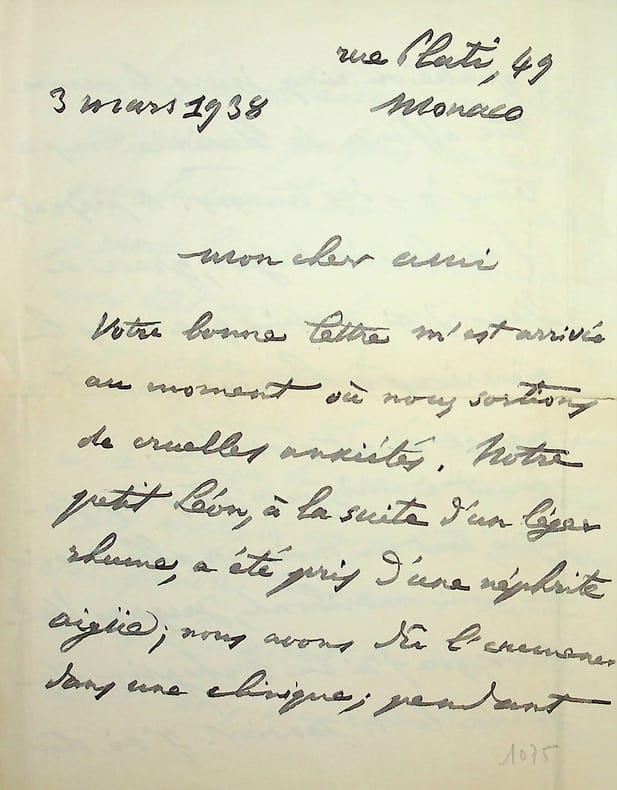 rue Plati, 49
3 mars 1938 Monaco
mon cher ami
Votre bonne lettre m'est arrivée
au moment où nous sortions
de cruelles anxiétés. Notre
petit Léon, à la suite d'un léger
rhume, a été pris d'une néphrite
aigüe; nous avons dû l'emmener
dans une clinique; pendant
1075